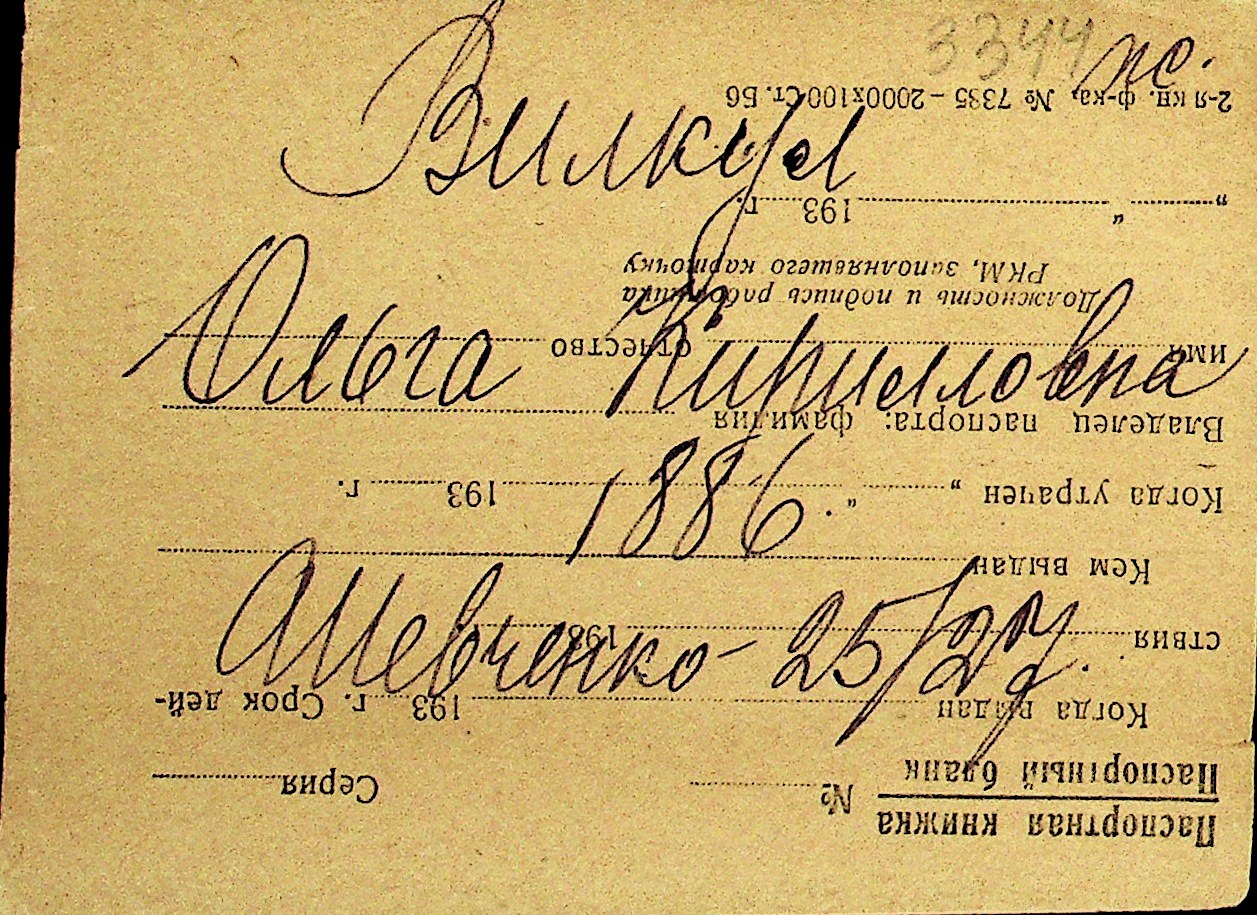 3344 пс.
Вилкул
Ольга Кирилловна
1886.
Шевченко - 25/27.
Паспортная книжка
Паспортный бланк
№ Серия
Когда выдан 193 г. Срок дей-
ствия 193
Кем выдан
Когда утрачен „ “ 193 г.
Владелец паспорта: фамилия
имя отчество
Должность и подпись работника
РКМ, заполнявшего карточку
„ “ 193 г.
2-я кн. ф-ка, № 7335 – 2000х100 Ст. Б6